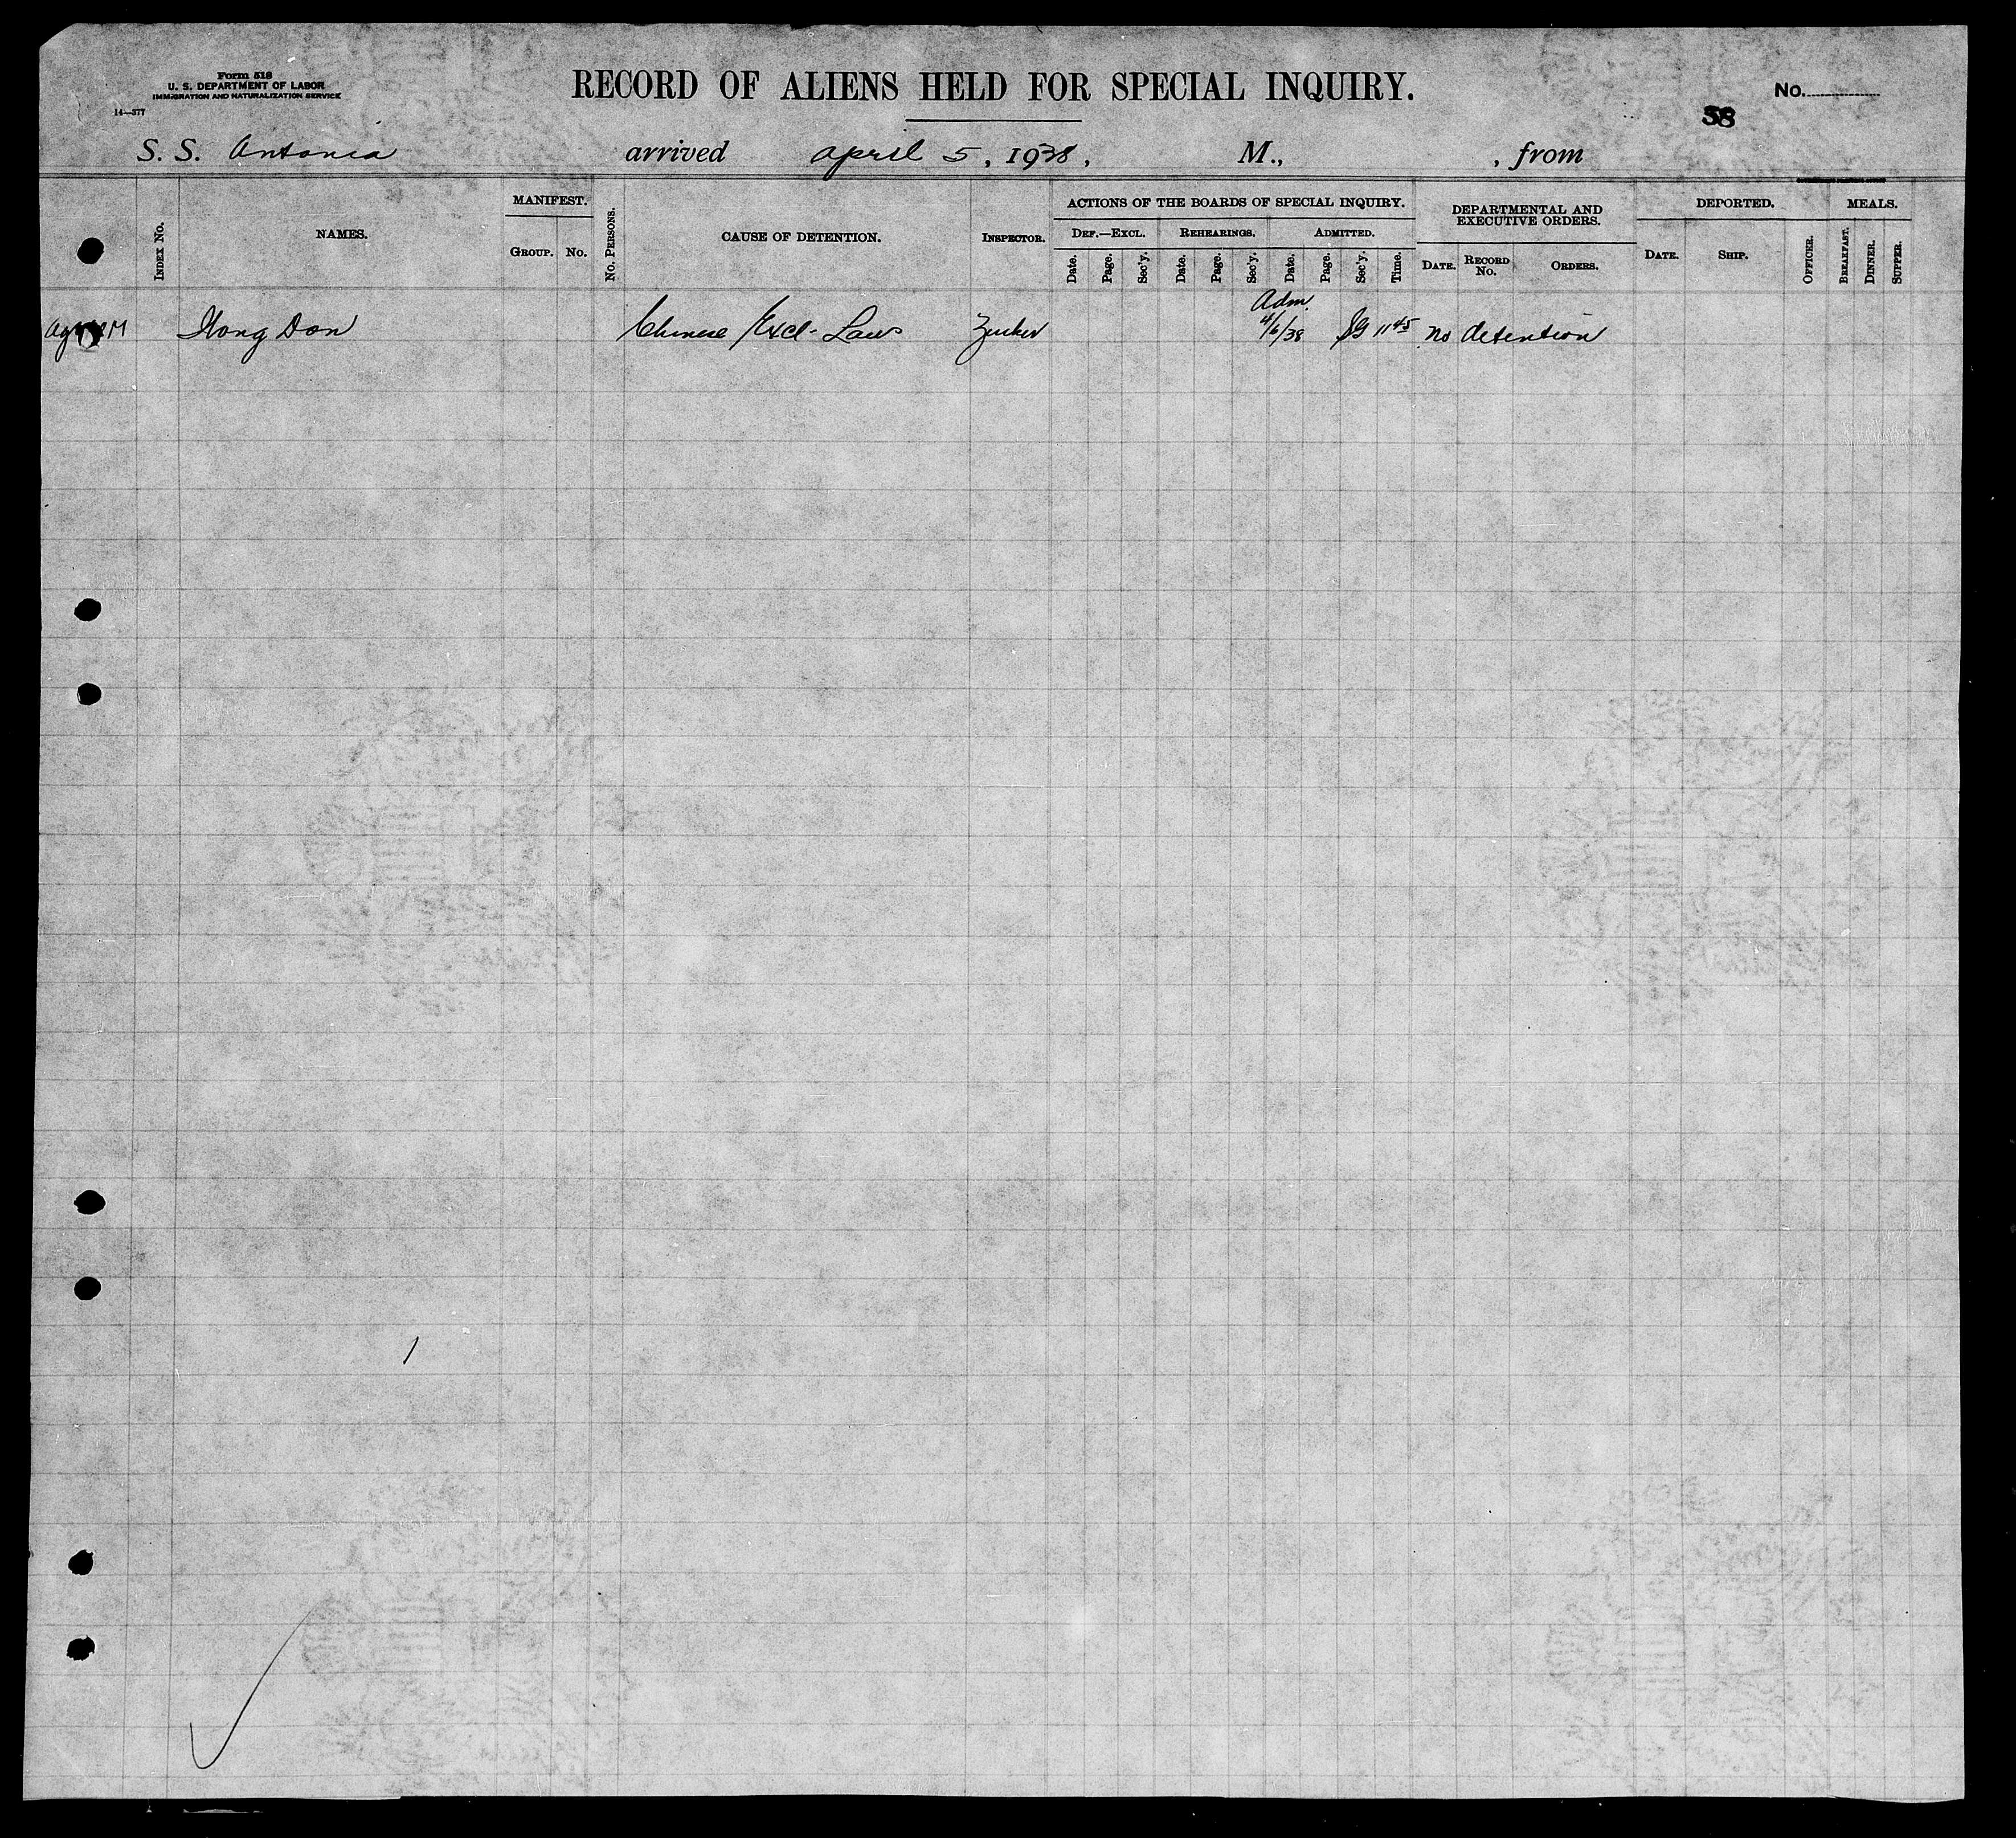 Form 518
U. S. DEPARTMENT OF LABOR
IMMIGRATION AND NATURALIZATION SERVICE
14—377
RECORD OF ALIENS HELD FOR SPECIAL INQUIRY.
No.
58
S. S. Antonia arrived April 5, 1938, M., , from
INDEX No. NAMES. MANIFEST. GROUP. No. No. PERSONS. CAUSE OF DETENTION. INSPECTOR.
ACTIONS OF THE BOARDS OF SPECIAL INQUIRY.
DEF.—EXCL. REHEARINGS. ADMITTED.
Date. Page. Sec'y. Date. Page. Sec'y. Date. Page. Sec'y. Time.
DEPARTMENTAL AND EXECUTIVE ORDERS.
DATE. RECORD No. ORDERS.
DEPORTED.
DATE. SHIP. OFFICER.
MEALS.
BREAKFAST. DINNER. SUPPER.
Adm.
Wong Don Chinese Excl. Laws Zucker 4/6/38 11 45 no detention
1